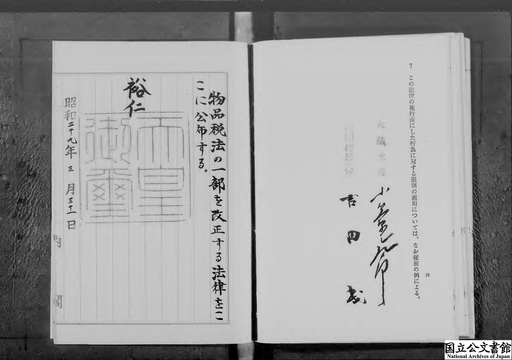 7 この法律の施行前にした行為に対する罰則の適用については、なお従前の例による。
四
大蔵大臣
小笠原三九郎
吉田茂
物品税法の一部を改正する法律をこ
こに公布する。
裕仁
天皇
御璽
昭和二十九年三月三十一日
内閣
国立公文書館
National Archives of Japan